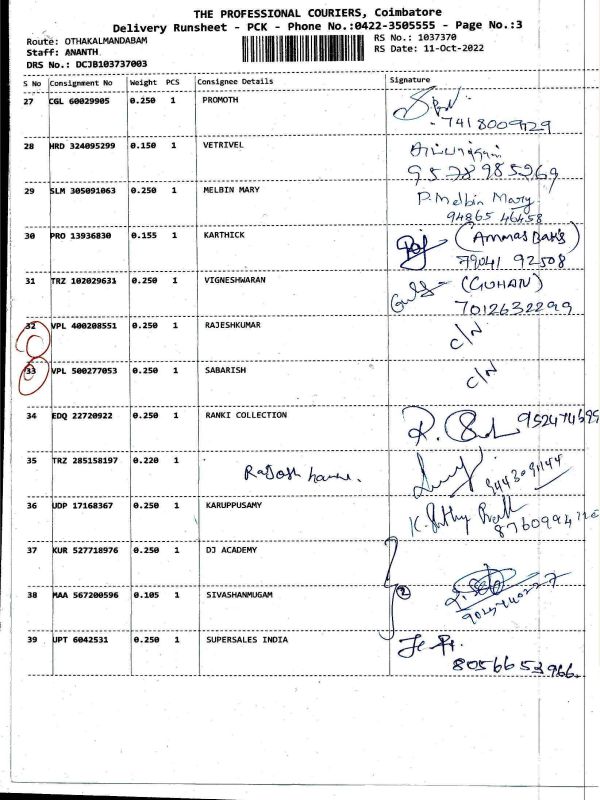 THE PROFESSIONAL COURIERS, Coimbatore
Delivery Runsheet - PCK - Phone No.:0422-3505555 - Page No.:3
Route: OTHAKALMANDABAM
RS No.: 1037370
Staff: ANANTH
RS Date: 11-Oct-2022
DRS No.: DCJB103737003
S No Consignment No Weight PCS Consignee Details Signature
27 CGL 60029905 0.250 1 PROMOTH
7418009129
28 HRD 324095299 0.150 1 VETRIVEL
9578985269
29 SLM 305091063 0.250 1 MELBIN MARY P. Melbin Mary
94865 46458
30 PRO 13936830 0.155 1 KARTHICK
79041 92508
31 TRZ 102029631 0.250 1 VIGNESHWARAN (GUHAN)
7012632299
32 VPL 400208551 0.250 1 RAJESHKUMAR C/N
33 VPL 500277053 0.250 1 SABARISH C/N
34 EDQ 22720922 0.250 1 RANKI COLLECTION
35 TRZ 285158197 0.220 1
36 UDP 17168367 0.250 1 KARUPPUSAMY
37 KUR 527718976 0.250 1 DJ ACADEMY
38 MAA 567200596 0.105 1 SIVASHANMUGAM 2
39 UPT 6042531 0.250 1 SUPERSALES INDIA
8056653966